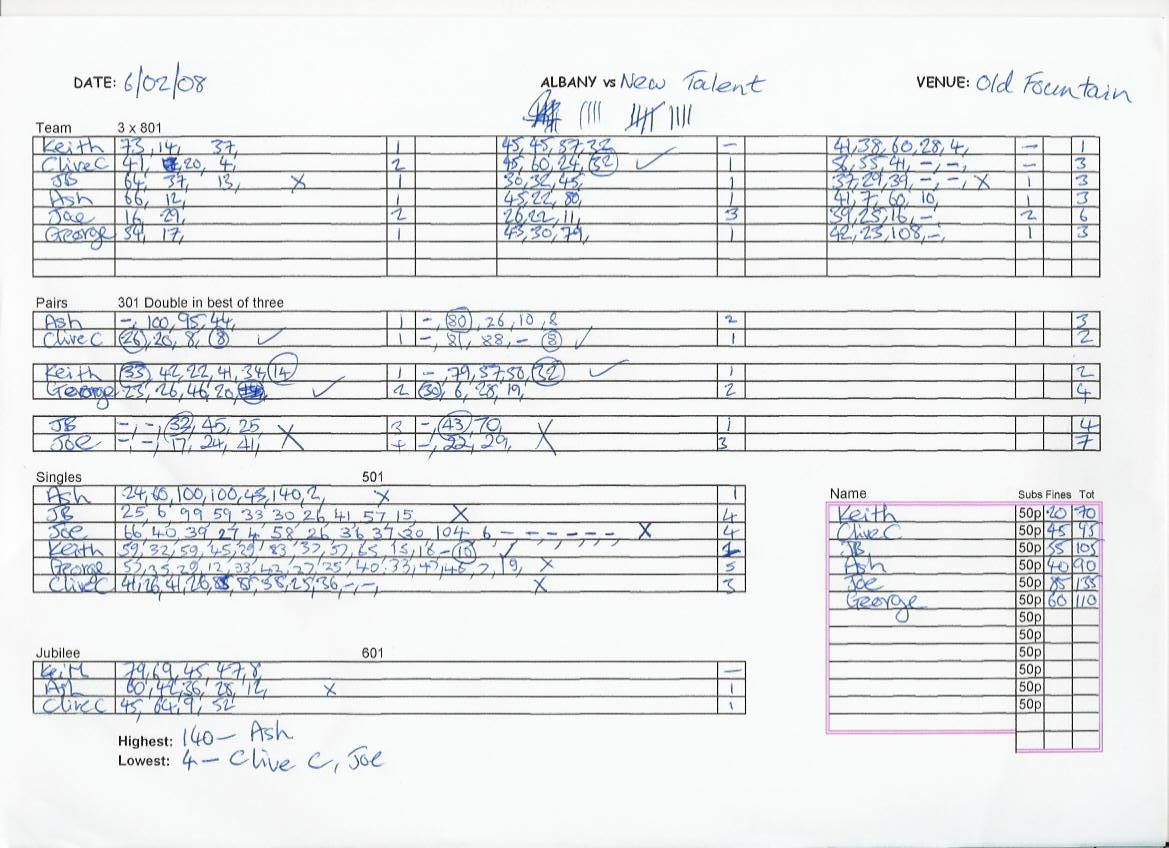 DATE: 6/02/08 ALBANY vs New Talent VENUE: Old Fountain
Team 3 x 801
Keith 73, 14, 37, 1 45, 45, 57, 32 - 41, 38, 60, 28, 4, - 1
Clive C 41, 20, 4, 2 45, 60, 24, 32 ✓ 1 55, 41, -, -, - 3
JB 64, 37, 13, X 1 30, 32, 45, 1 37, 29, 39, -, -, X 1 3
Ash 66, 12, 1 45, 22, 80, 1 41, 7, 60, 10, 1 3
Joe 16, 29, 2 26, 22, 11, 3 39, 25, 16, -, 2 6
George 54, 17, 1 43, 30, 79, 1 42, 23, 108, -, 1 3
Pairs 301 Double in best of three
Ash -, 100, 95, 44, 1 -, 80, 26, 10, 8 2 3
Clive C 26, 20, 8, 8 ✓ 1 -, 81, 88, - 8 ✓ 1 2
Keith 33, 42, 22, 41, 34, 14 1 -, 79, 57, 50, 32 ✓ 1 2
George 23, 26, 46, 20, ✓ 2 30, 6, 28, 19, 2 4
JB -, -, 32, 45, 25 X 3 -, 43, 70, X 1 4
Joe -, -, 17, 24, 41, -, 22, 29, 3 7
Singles 501
Ash 24, 60, 100, 100, 43, 140, 2, X 1
JB 25 6 99 59 33 30 26 41 57 15, X 4
Joe 66, 40, 39, 27, 4, 58, 26, 36, 37, 20, 104, 6, - - - - - - X 4
Keith 59, 32, 59, 45, 29, 83, 37, 57, 65, 15, 18 - 10 ✓
George 57, 35, 20, 12, 33, 42, 27, 25, 40, 33, 47, 46, 7, 19, X 5
Clive C 41, 26, 41, 26, 85, 58, 25, 36, -, -, X 3
Jubilee 601
Keith 79, 69, 45, 47, 8, -
Ash 60, 42, 36, 28, 12, X 1
Clive C 45, 64, 9, 52 1
Highest: 140 - Ash
Lowest: 4 - Clive C, Joe
Name Subs Fines Tot
Keith 50p 20 70
Clive C 50p 45 95
JB 50p 55 105
Ash 50p 40 90
Joe 50p 85 135
George 50p 60 110
50p
50p
50p
50p
50p
50p